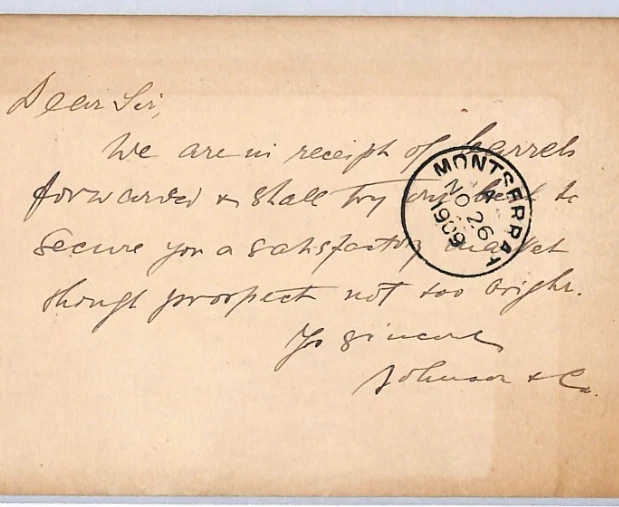 Dear Sir,
We are in receipt of barrels
forwarded & shall try our best to
secure you a satisfactory market
though prospect not too bright.
Yrs sincerely
Johnson & Co.
MONTSERRAT
A
NO 26
1929